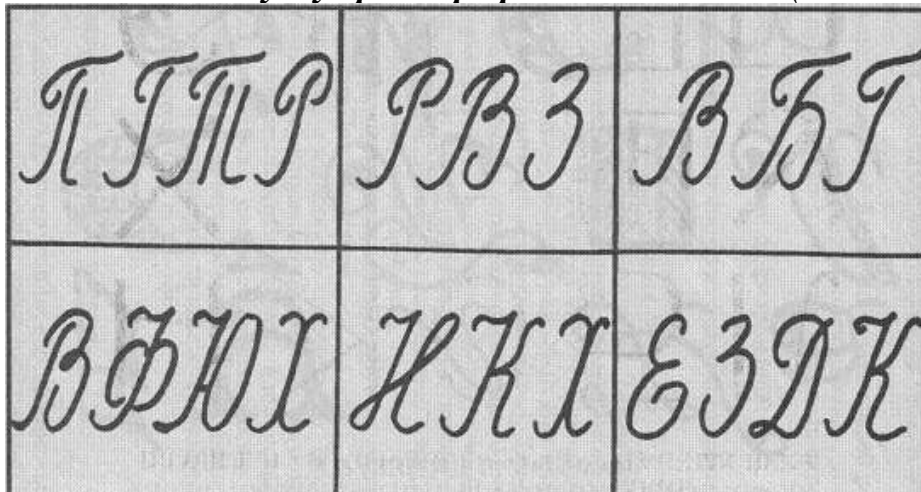 П Г Т Р Р В З В Б Г
В Ф Ю Х Н К Х Е З Д К